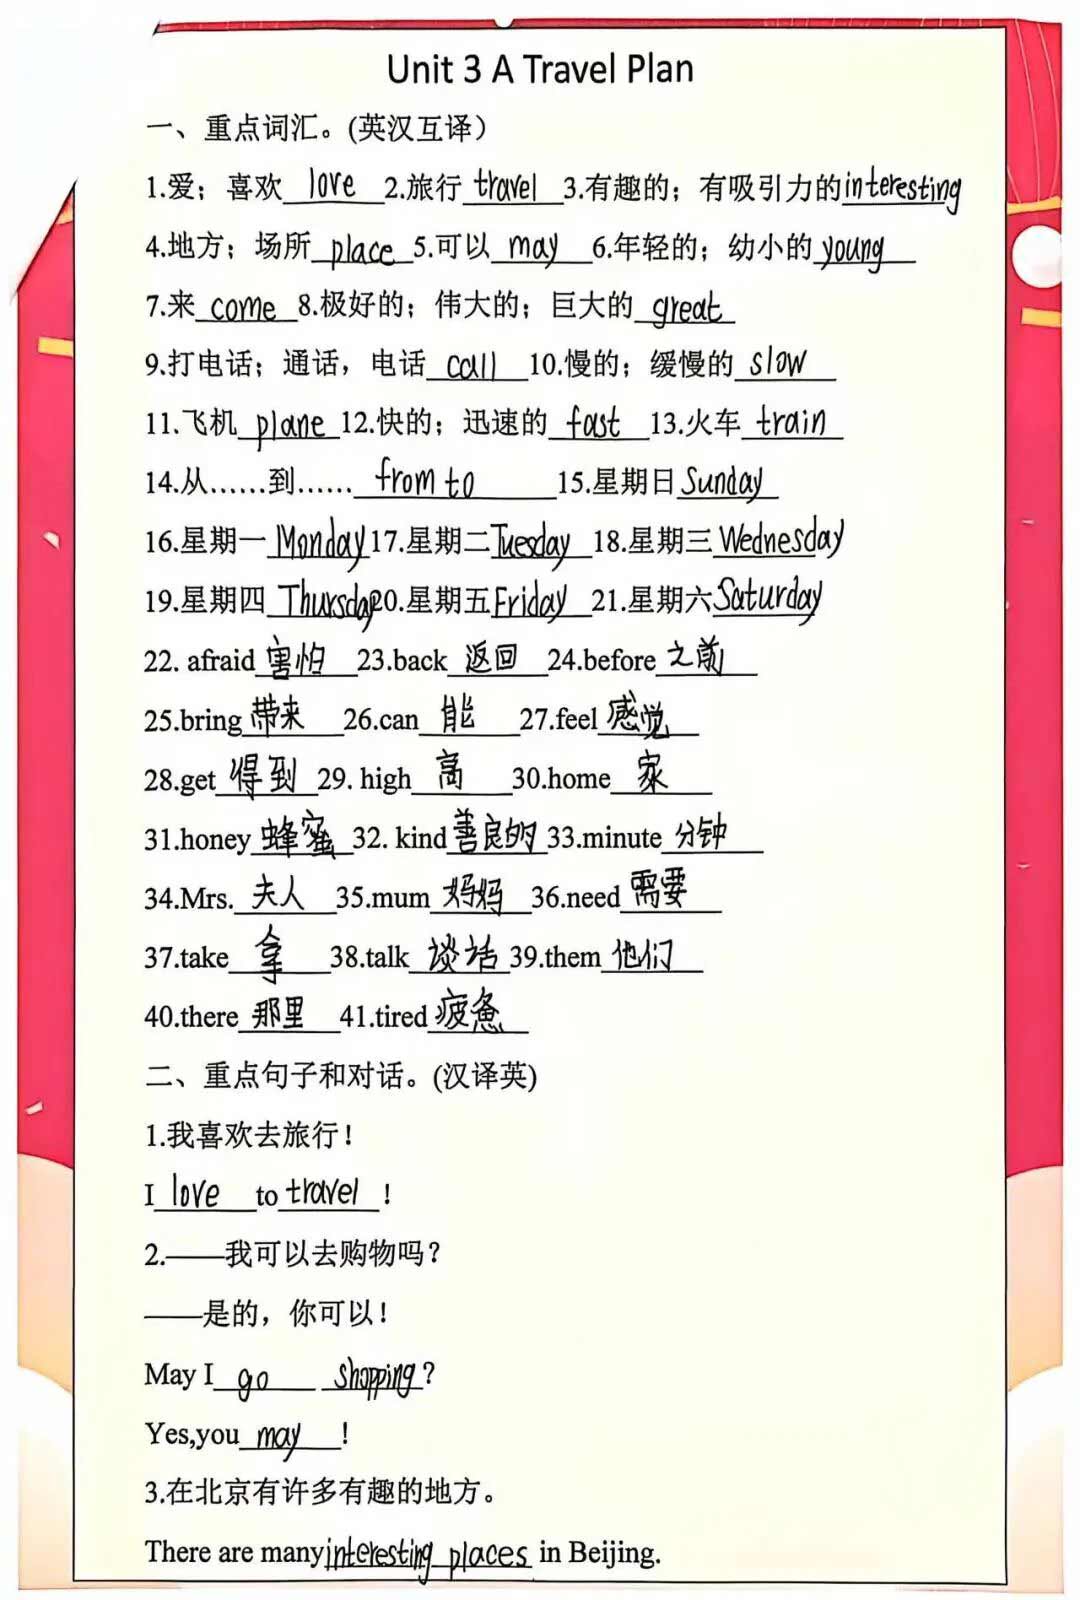 Unit 3 A Travel Plan
一、重点词汇。(英汉互译)
1.爱；喜欢 love 2.旅行 travel 3.有趣的；有吸引力的 interesting
4.地方；场所 place 5.可以 may 6.年轻的；幼小的 young
7.来 come 8.极好的；伟大的；巨大的 great
9.打电话；通话，电话 call 10.慢的；缓慢的 slow
11.飞机 plane 12.快的；迅速的 fast 13.火车 train
14.从……到…… from to 15.星期日 Sunday
16.星期一 Monday 17.星期二 Tuesday 18.星期三 Wednesday
19.星期四 Thursday 20.星期五 Friday 21.星期六 Saturday
22. afraid 害怕 23.back 返回 24.before 之前
25.bring 带来 26.can 能 27.feel 感觉
28.get 得到 29. high 高 30.home 家
31.honey 蜂蜜 32. kind 善良的 33.minute 分钟
34.Mrs. 夫人 35.mum 妈妈 36.need 需要
37.take 拿 38.talk 谈话 39.them 他们
40.there 那里 41.tired 疲惫
二、重点句子和对话。(汉译英)
1.我喜欢去旅行！
I love to travel！
2.——我可以去购物吗？
——是的，你可以！
May I go shopping？
Yes,you may！
3.在北京有许多有趣的地方。
There are many interesting places in Beijing.